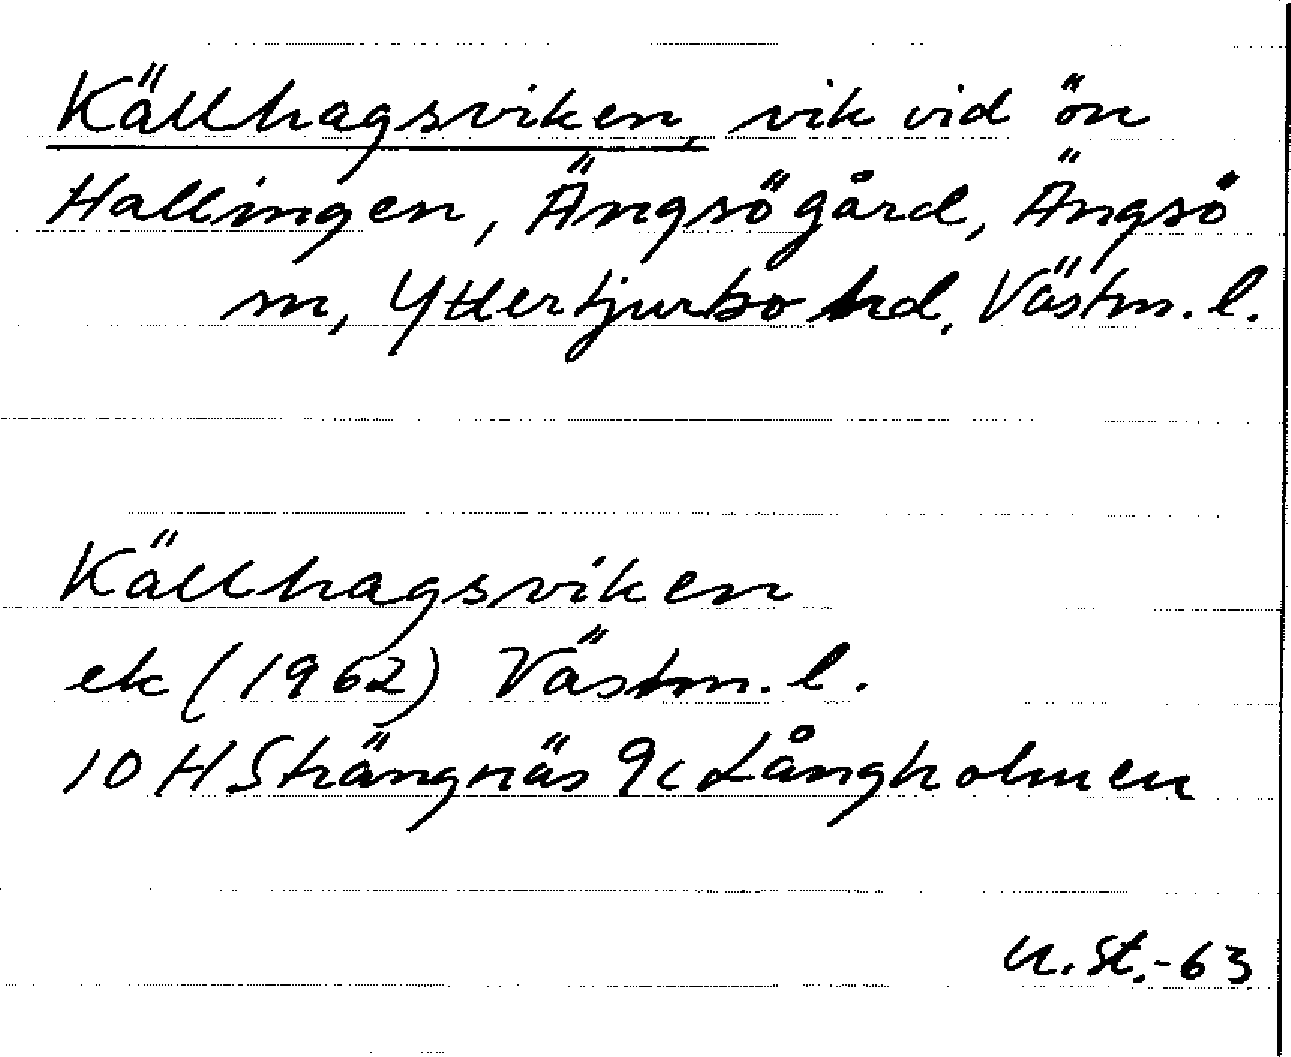 Källhagsviken, vik vid ön
Hallingen, Ängsö gård, Ängsö
sn, Yttertjurbo hd, Västm. l.
Källhagsviken
ek (1962) Västm. l.
10 H Strängnäs 9c Långholmen
U. St. -63